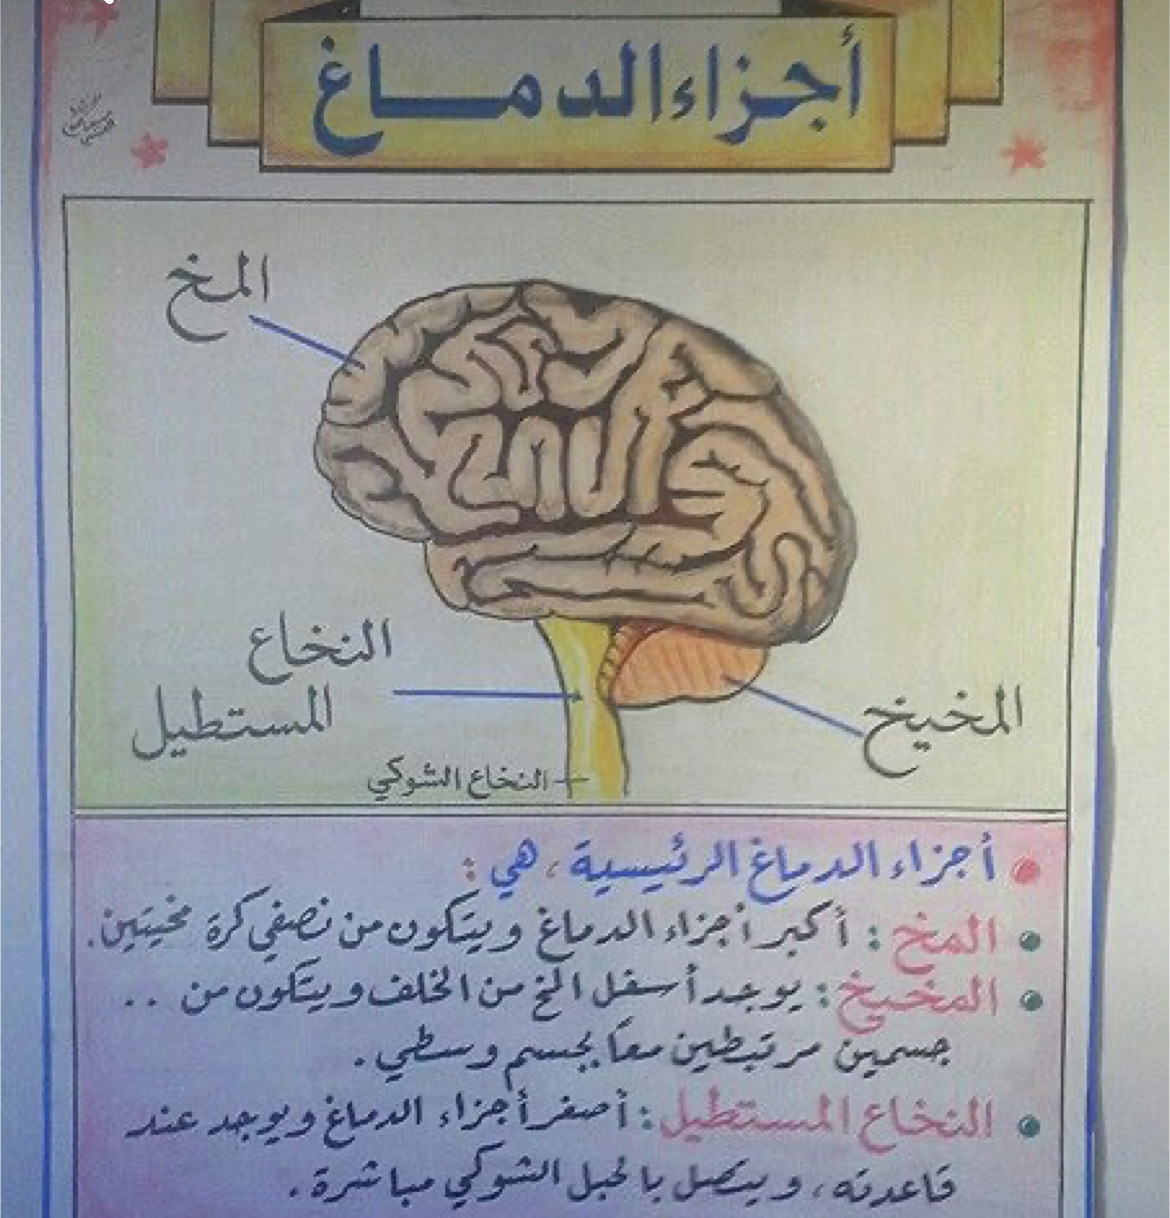 أجزاء الدماغ
المخ
النخاع
المستطيل
المخيخ
النخاع الشوكي
أجزاء الدماغ الرئيسية ، هي :
المخ : أكبر أجزاء الدماغ ويتكون من نصفي كرة مخيتين .
المخيخ : يوجد أسفل المخ من الخلف ويتكون من . .
جسمين مرتبطين معاً بجسم وسطي .
النخاع المستطيل : أصغر أجزاء الدماغ ويوجد عند
قاعدته ، ويتصل بالحبل الشوكي مباشرة .